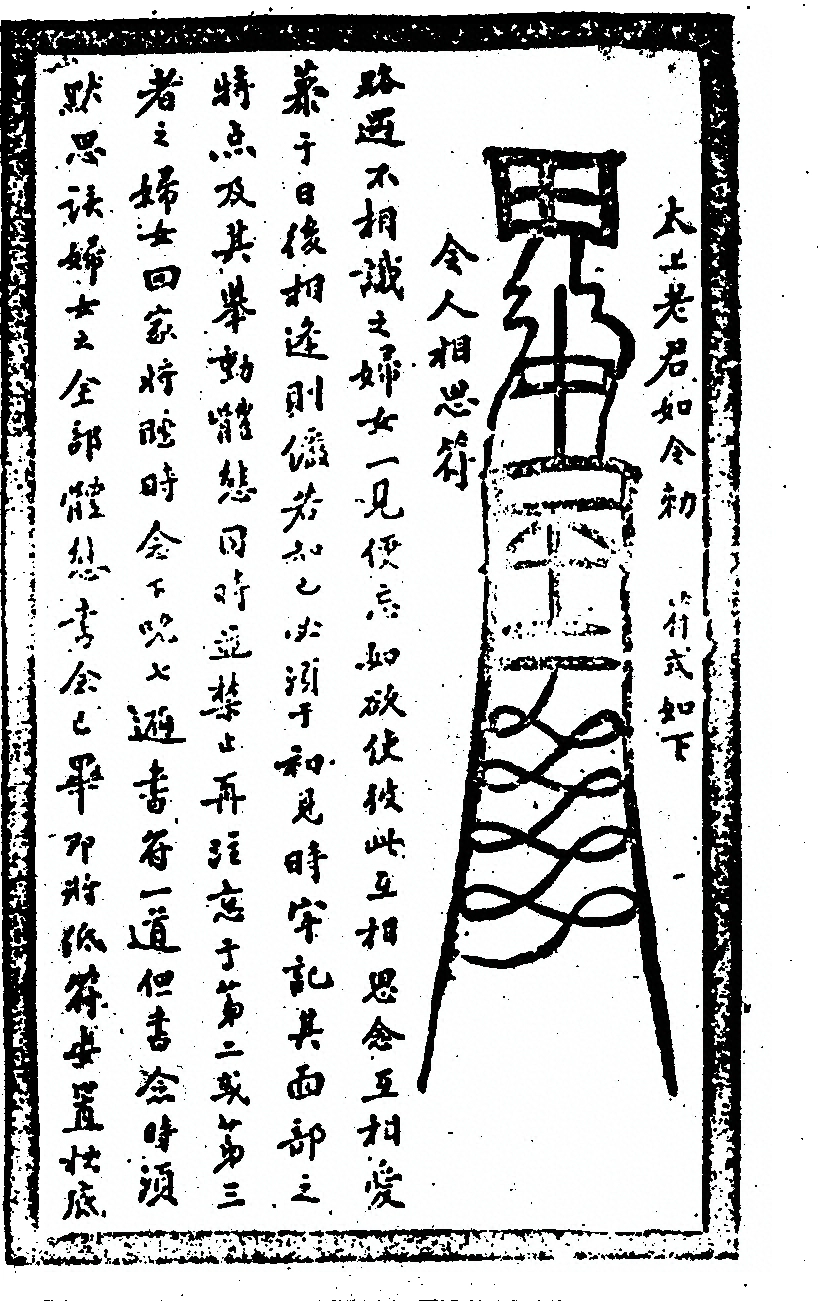 太上老君如令勅　符式如下
令人相思符
路遇不相識之婦女一見便忘如欲使彼此互相思念互相愛
慕于日後相逢則儼若知己必須于初見時牢記其面部之
特点及其舉動體態同時並禁止再註意于第二或第三
者之婦女回家將睡時念下咒七遍書符一道但書念時須
默思該婦女之全部體態書念已畢即將紙符安置枕底